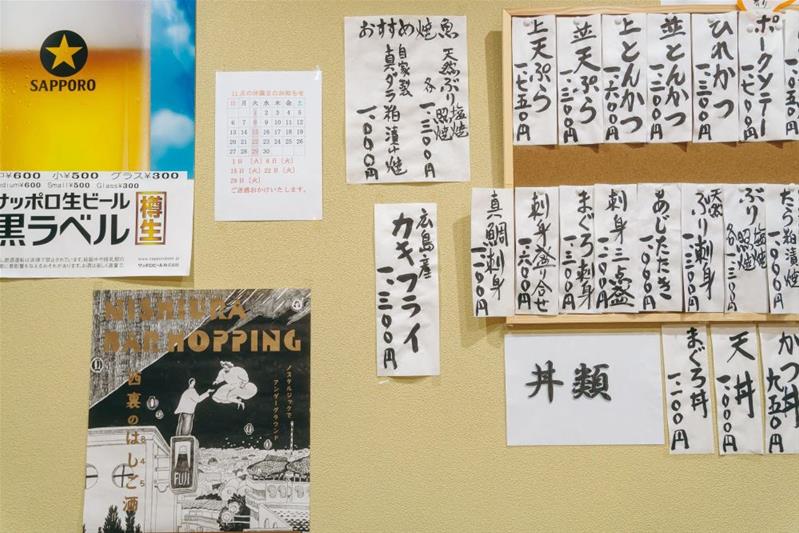 SAPPORO
中¥600 小¥500 グラス¥300
Medium¥600 Small¥500 Glass¥300
サッポロ生ビール
黒ラベル
樽生
サッポロビール株式会社
11月の休業日のお知らせ
日 月 火 水 木 金 土
1 2 3 4 5
6 7 8 9 10 11 12
13 14 15 16 17 18 19
20 21 22 23 24 25 26
27 28 29 30
1日 (火) 8日 (火)
15日 (火) 22日 (火)
29日 (火)
ご迷惑おかけいたします。
おすすめ焼魚
天然ぶり 塩焼 照焼
各一、三〇〇円
自家製
真ダラ粕漬け焼
一、〇〇〇円
広島産
カキフライ
一、三〇〇円
ポークソテー
ひれかつ
並とんかつ
上とんかつ
一、六〇〇円
並天ぷら
上天ぷら
一、七五〇円
たら粕漬焼
ぶり 塩焼 照焼
各一、三〇〇円
天然
ぶり刺身
あじたたき
刺身三点盛
まぐろ刺身
刺身盛り合せ
一、六〇〇円
真鯛刺身
丼類
かつ丼
九五〇円
天丼
まぐろ丼
一、一〇〇円
NISHIURA
BAR HOPPING
ノスタルジックで
アンダーグラウンド
西裏のはしご酒
8 4 5
FUJI